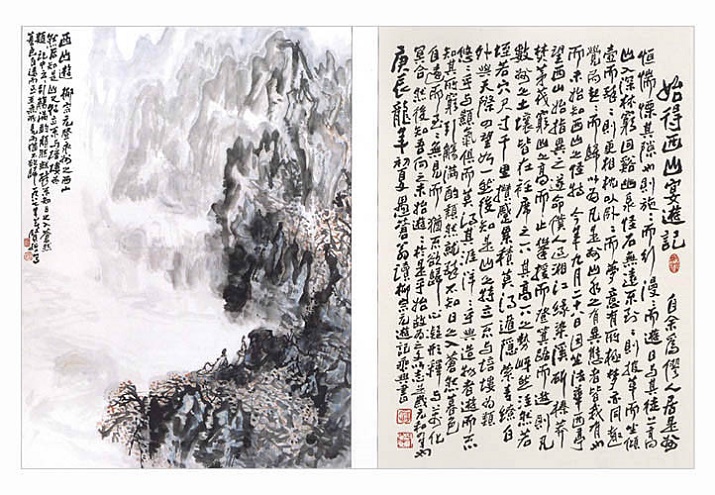 始得西山宴遊記
自余為僇人居是州
恒惴慄其隟也則施施而行漫漫而遊日與其徒上高
山入深林窮迴谿幽泉怪石無遠不到到則披草而坐傾
壺而醉醉則更相枕以卧卧而夢意有所極夢亦同趣
覺而起起而歸以為凡是州山水之有異態者皆我有也
而未始知西山之怪特今年九月二十八日因坐法華西亭
望西山始指異之遂命僕人過湘江緣染溪斫榛莽
焚茅茷窮山之高而止攀援而登箕踞而遨則凡
數州之土壤皆在衽席之下其高下之勢岈然洼然若
垤若穴尺寸千里攢蹙累積莫得遯隱縈青繚白
外與天際四望如一然後知是山之特立不與培塿為類
悠悠乎與顥氣俱而莫得其涯洋洋乎與造物者遊而不
知其所窮引觴滿酌頹然就醉不知日之入蒼然暮色
自遠而至至無所見而猶不欲歸心凝形釋與萬化
冥合然後知吾向之未始遊遊於是乎始故為之文以志是歲元和四年也
庚辰龍年初夏讀柳宗元遊記乘興書
西山遊 柳宗元登永州之西山
然後知是山之特立不與培塿為
類引觴滿酌頹然就醉不知日之入蒼然
暮色自遠而至至無所見而猶不欲歸